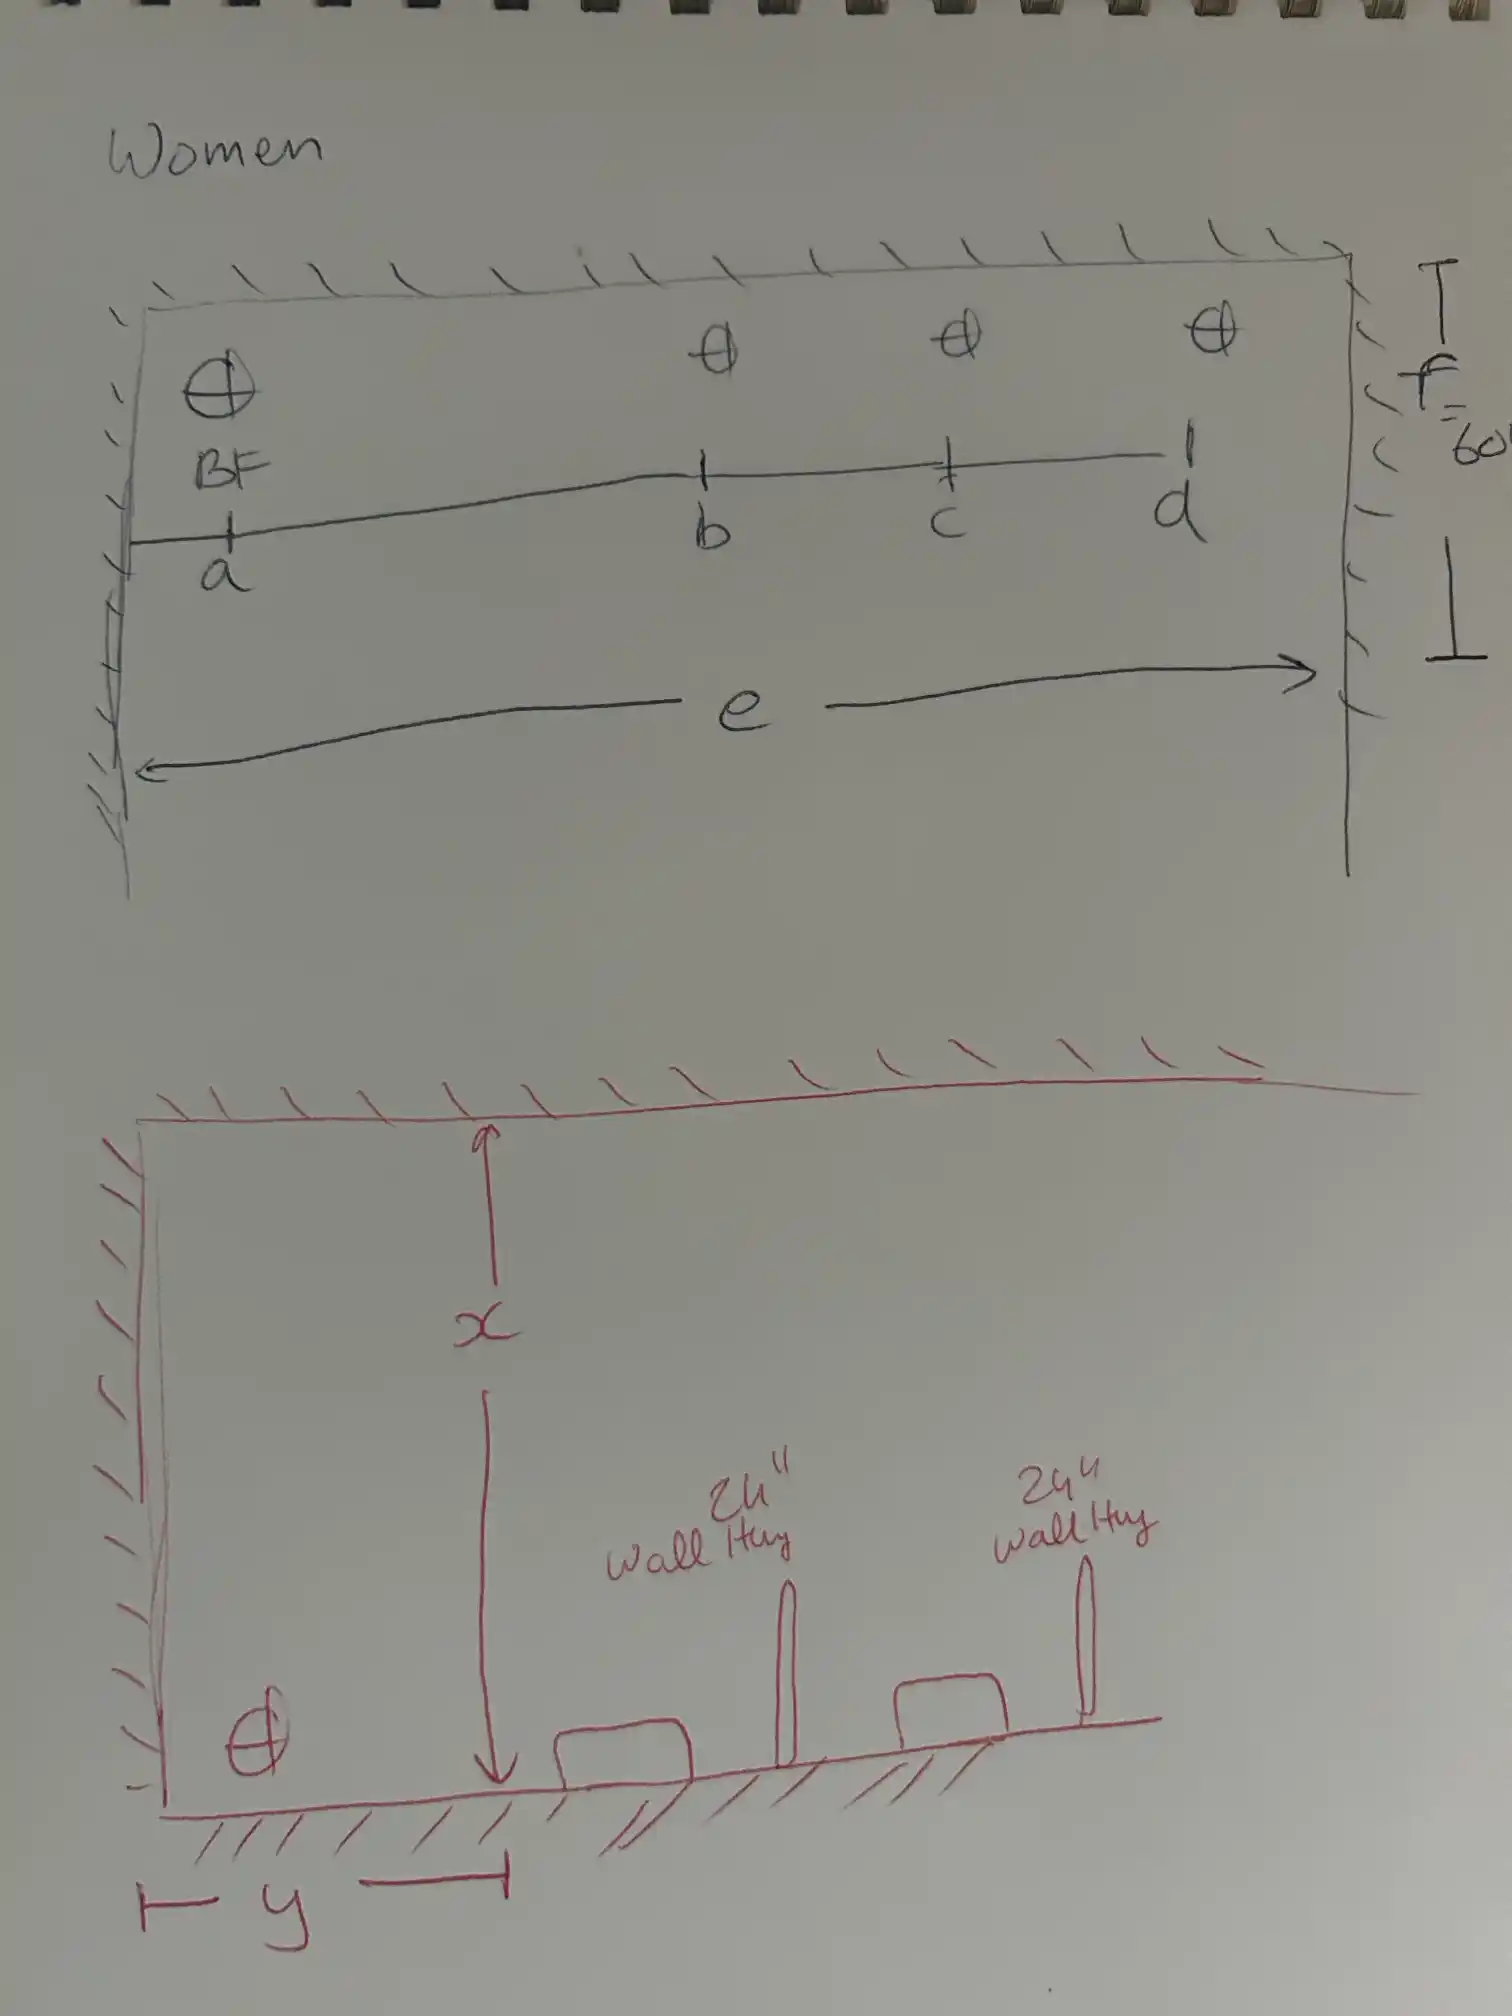 Women
BF
a
b
c
d
e
f
=
60"
x
24"
Wall Hug
24"
Wall Hug
y